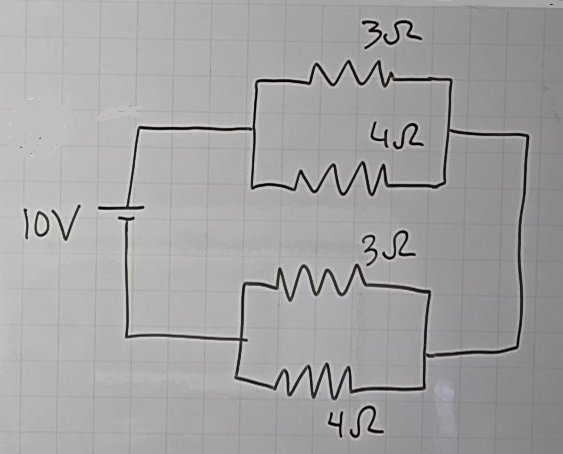 3Ω
4Ω
10V
3Ω
4Ω